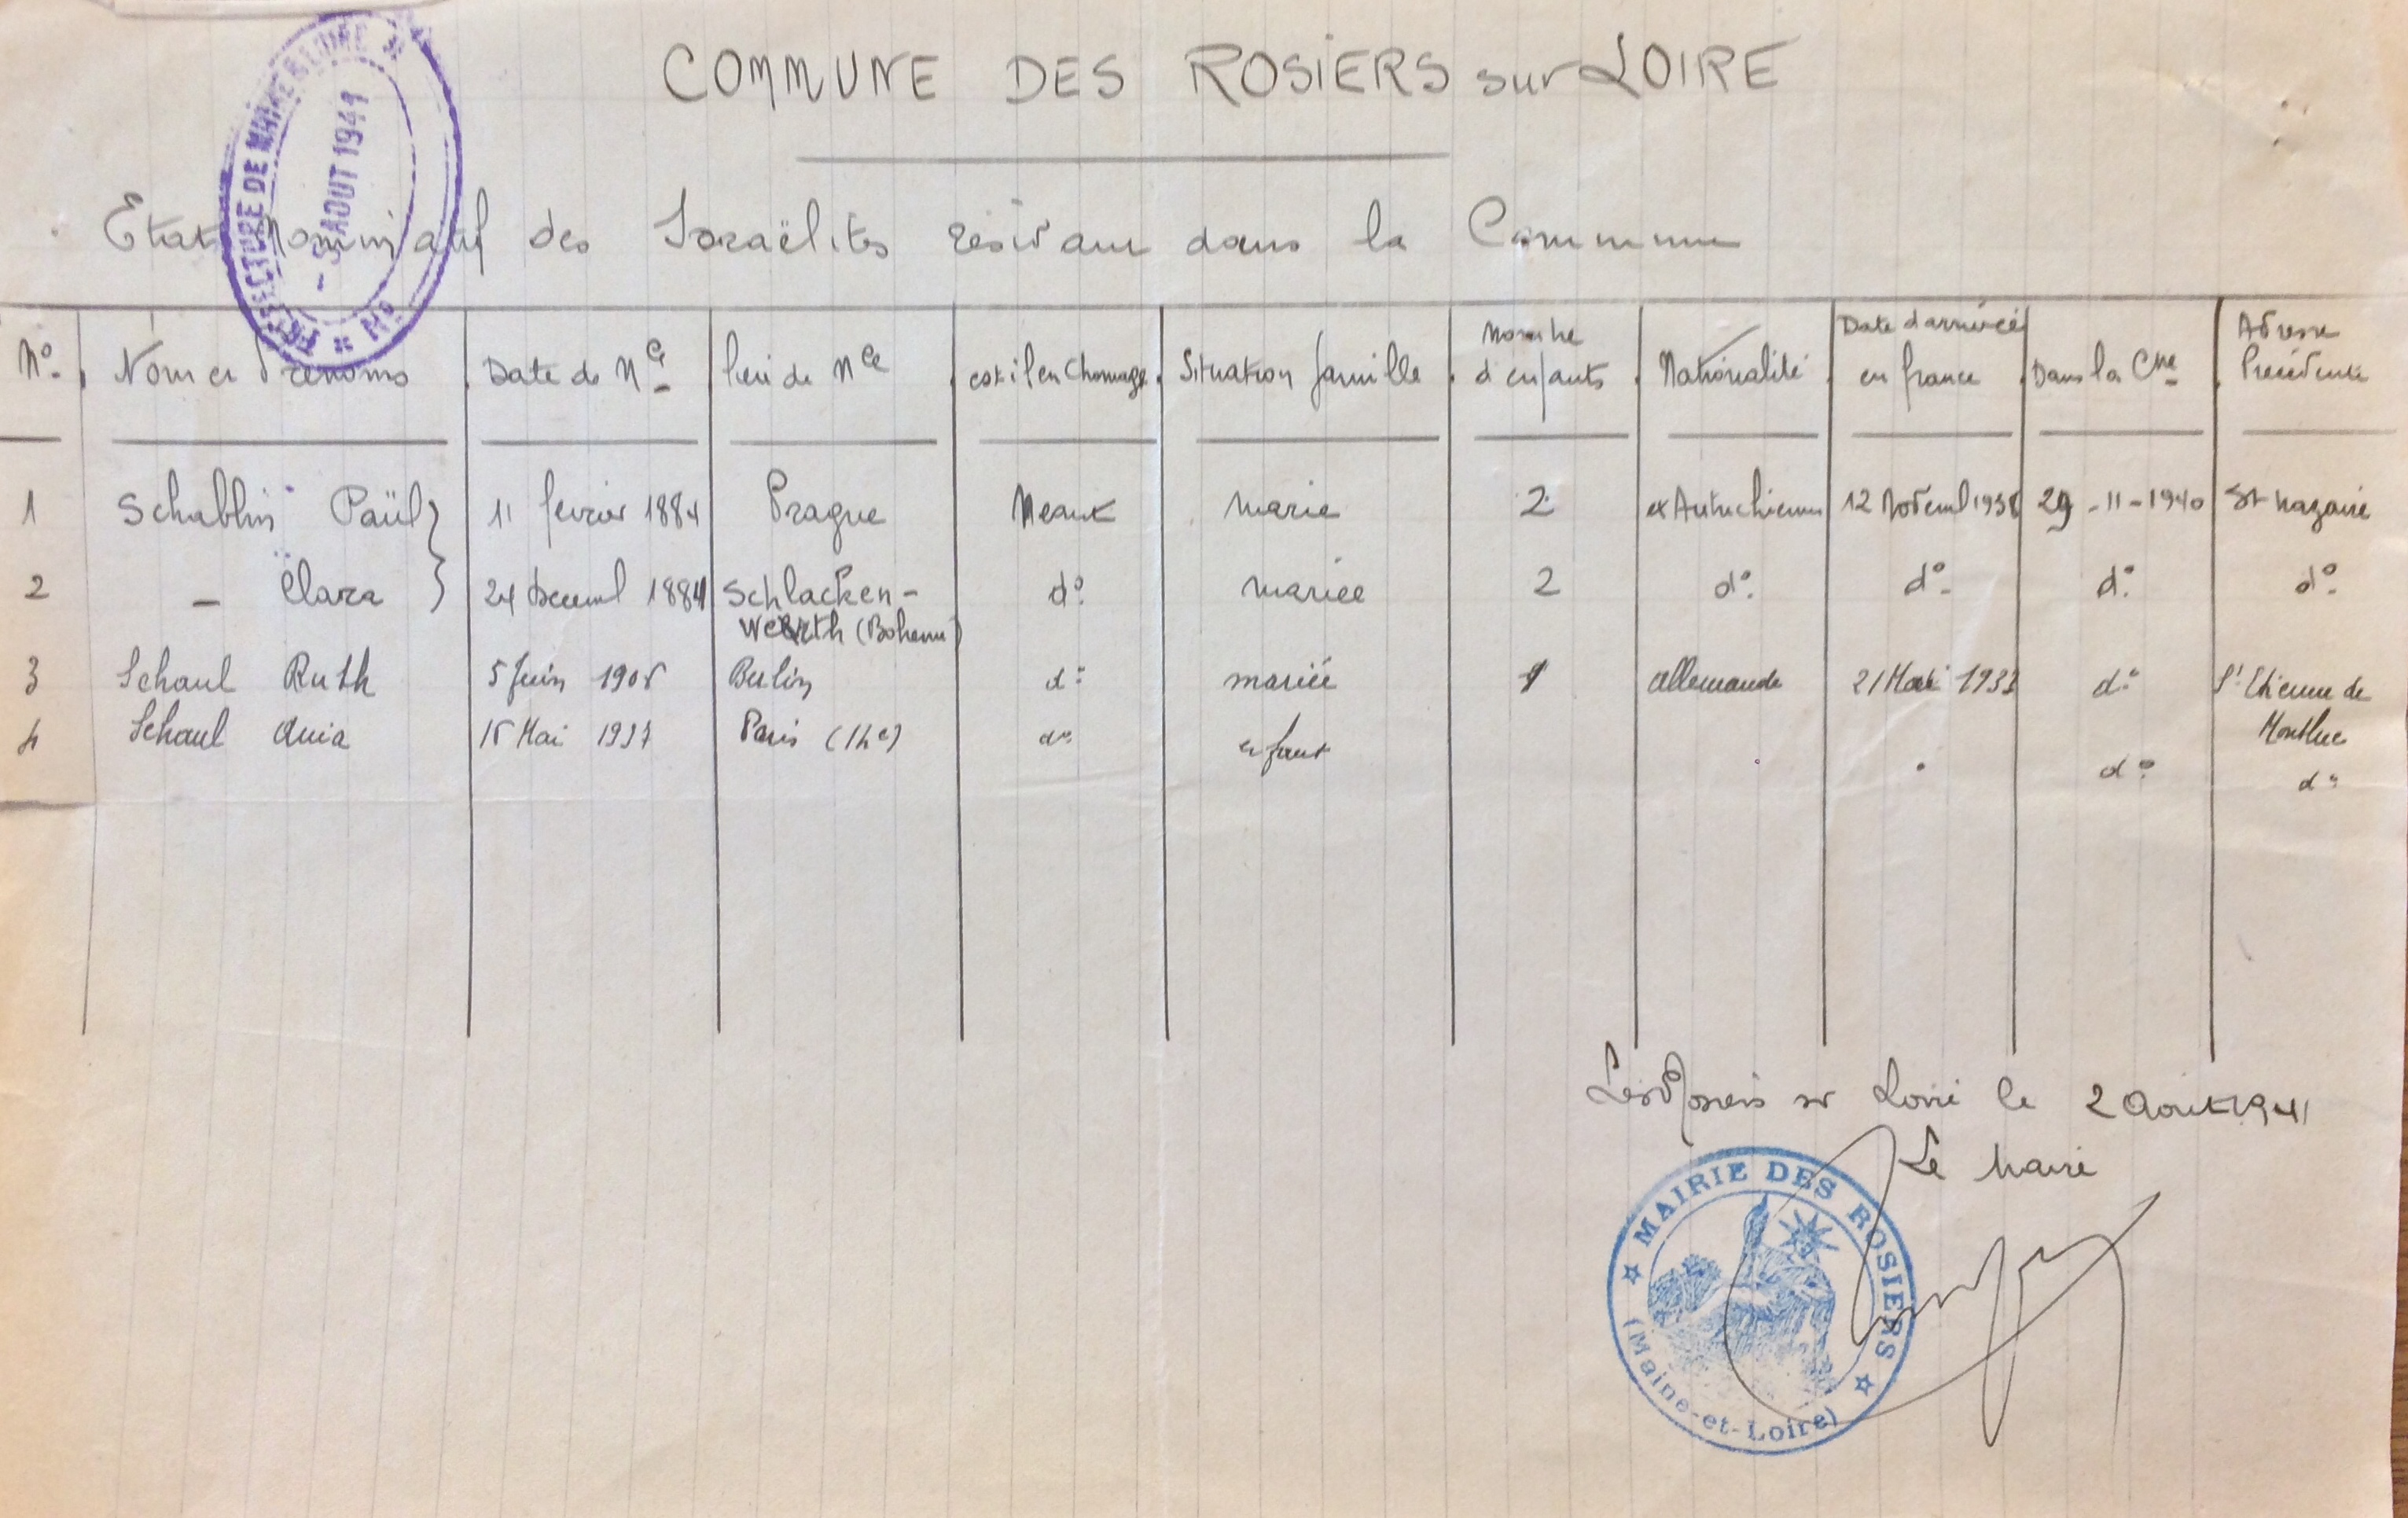 COMMUNE DES ROSIERS sur LOIRE
PREFECTURE DE MAINE ET LOIRE
- 5 AOUT 1941
Etat nominatif des Israëlites résidant dans la Commune
No. Nom et Prénoms Date de Nce lieu de Nce est il en chomage Situation famille Nombre d'enfants Nationalité Date d'arrivée en france Dans la Cne Adresse Précédente
1 Schablin Paül 11 fevrier 1884 Prague Neant marie 2 ex Autrichienne 12 Novemb 1938 29-11-1940 St Nazaire
2 - Clara 24 Decemb 1884 Schlacken-werth (Boheme) do. mariée 2 do. do. do. do.
3 Schaul Ruth 5 Juin 1908 Berlin do mariée 1 allemande 21 Mai 1933 do St Etienne de Montluc
4 Schaul Ania 15 Mai 1937 Paris (14e) do enfant do do
Les Rosiers sr Loire le 2 Aout 1941
Le Maire
MAIRIE DES ROSIERS
(Maine-et-Loire)